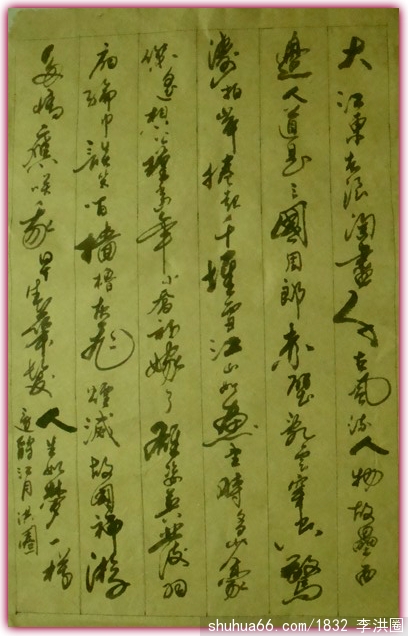 大江東去浪淘盡千古風流人物故壘西
邊人道是三國周郎赤壁亂石穿空驚
濤拍岸捲起千堆雪江山如畫一時多少豪
傑遙想公瑾當年小喬初嫁了雄姿英發羽
扇綸巾談笑間檣櫓灰飛煙滅故國神游
多情應笑我早生華髮人生如夢一樽
還酹江月洪圈
shuhua66.com/1832 李洪圈